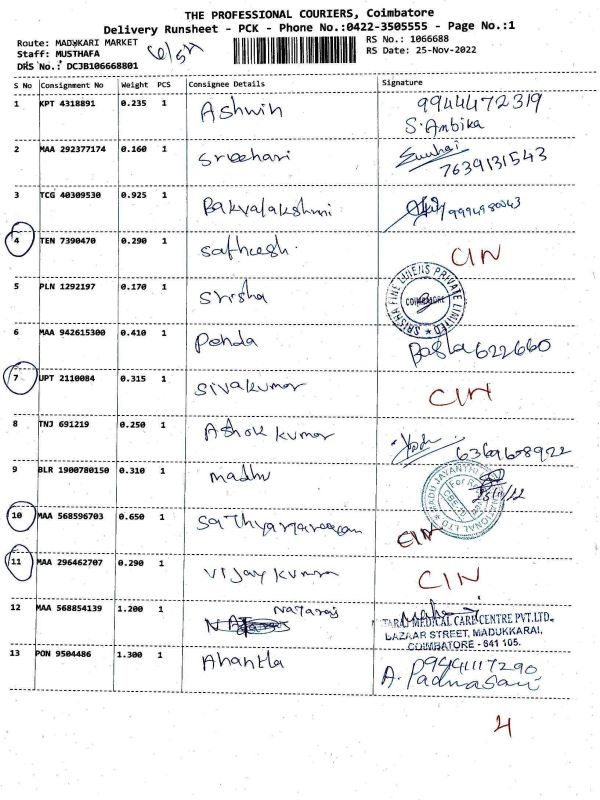 THE PROFESSIONAL COURIERS, Coimbatore
Delivery Runsheet - PCK - Phone No.:0422-3505555 - Page No.:1
Route: MADUKARI MARKET
RS No.: 1066688
Staff: MUSTHAFA
RS Date: 25-Nov-2022
DRS No.: DCJB106668801
S No Consignment No Weight PCS Consignee Details Signature
1 KPT 4318891 0.235 1 Ashwin 9944472319
S. Ambika
2 MAA 292377174 0.160 1 Sreehari 7639131543
3 TCG 40309530 0.925 1 Bakyalakshmi
4 TEN 7390470 0.290 1 Satheesh. CIN
5 PLN 1292197 0.170 1 Srisha SRISHA FINE LINENS PRIVATE LIMITED COIMBATORE
6 MAA 942615300 0.410 1 622660
7 UPT 2110084 0.315 1 Sivakumar CIN
8 TNJ 691219 0.250 1 Ashok kumar
9 BLR 1900780150 0.310 1 madhu
10 MAA 568596703 0.650 1 CIN
11 MAA 296462707 0.290 1 Vijay kumar CIN
12 MAA 568854139 1.200 1 Nataraj
MEDICAL CARE CENTRE PVT.LTD.
BAZAAR STREET, MADUKKARAI,
COIMBATORE - 641 105.
13 PON 9504486 1.300 1 Ahantla P9441117290
A. Padmasani
4